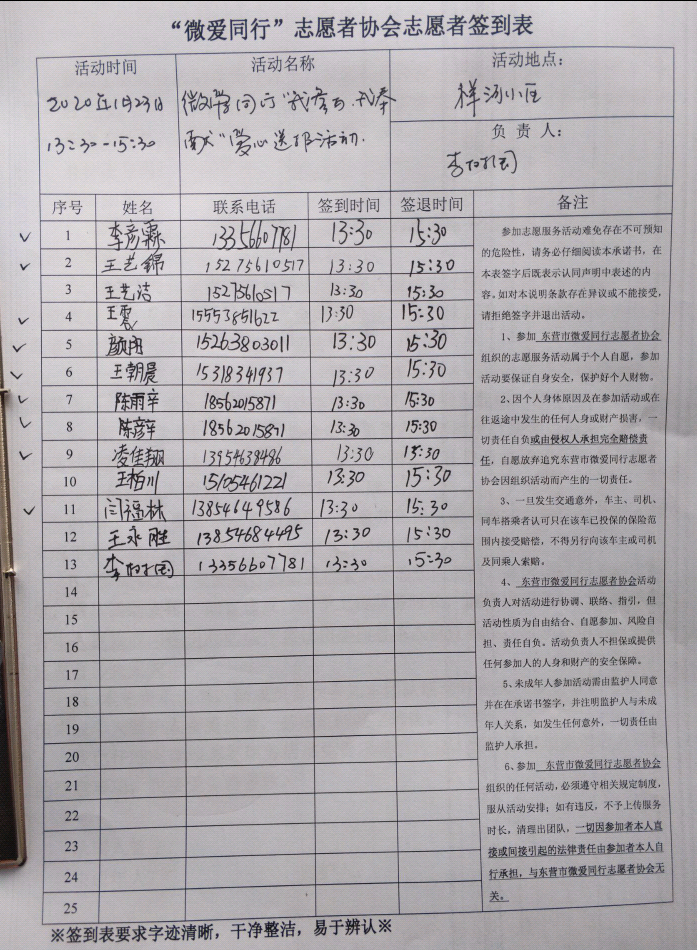 “微爱同行”志愿者协会志愿者签到表
活动时间 活动名称 活动地点：
2020年1月23日
13:30-15:30
微爱同行“我参与.我奉
献”爱心送报活动.
祥泓小区
负责人：
序号 姓名 联系电话 签到时间 签退时间 备注
1 李彦霖 13356607781 13:30 15:30
2 王艺锦 15275610517 13:30 15:30
3 王艺洁 15275610517 13:30 15:30
4 王震 15553851622 13:30 15:30
5 颜翔 15263803011 13:30 15:30
6 王朝晨 15318341937 13:30 15:30
7 陈雨辛 18562015871 13:30 15:30
8 陈彦辛 18562015871 13:30 15:30
9 凌佳翔 13954638486 13:30 15:30
10 王柏川 15105461221 13:30 15:30
11 闫福林 13854649586 13:30 15:30
12 王永胜 13854684495 13:30 15:30
13 13356607781 13:30 15:30
14
15
16
17
18
19
20
21
22
23
24
25
参加志愿服务活动难免存在不可预知
的危险性，请务必仔细阅读本承诺书，在
本表签字后既表示认同声明中表述的内
容。如对本说明条款存在异议或不能接受，
请拒绝签字并退出活动。
1、参加 东营市微爱同行志愿者协会
组织的志愿服务活动属于个人自愿，参加
活动要保证自身安全，保护好个人财物。
2、因个人身体原因及在参加活动或在
往返途中发生的任何人身或财产损害，一
切责任自负或由侵权人承担完全赔偿责
任，自愿放弃追究东营市微爱同行志愿者协
会因组织活动而产生的一切责任。
3、一旦发生交通意外，车主、司机、
同车搭乘者认可只在该车已投保的保险范
围内接受赔偿，不得另行向该车主或司机
及同乘人索赔。
4、 东营市微爱同行志愿者协会活动
负责人对活动进行协调、联络、指引，但
活动性质为自由结合、自愿参加、风险自
担、责任自负。活动负责人不担保或提供
任何参加人的人身和财产的安全保障。
5、未成年人参加活动需由监护人同意
并在在承诺书签字，并注明监护人与未成
年人关系，如发生任何意外，一切责任由
监护人承担。
6、参加 东营市微爱同行志愿者协会
组织的任何活动，必须遵守相关规定制度，
服从活动安排；如有违反，不予上传服务
时长，清理出团队，一切因参加者本人直
接或间接引起的法律责任由参加者本人自
行承担，与东营市微爱同行志愿者协会无
关。
※签到表要求字迹清晰，干净整洁，易于辨认※